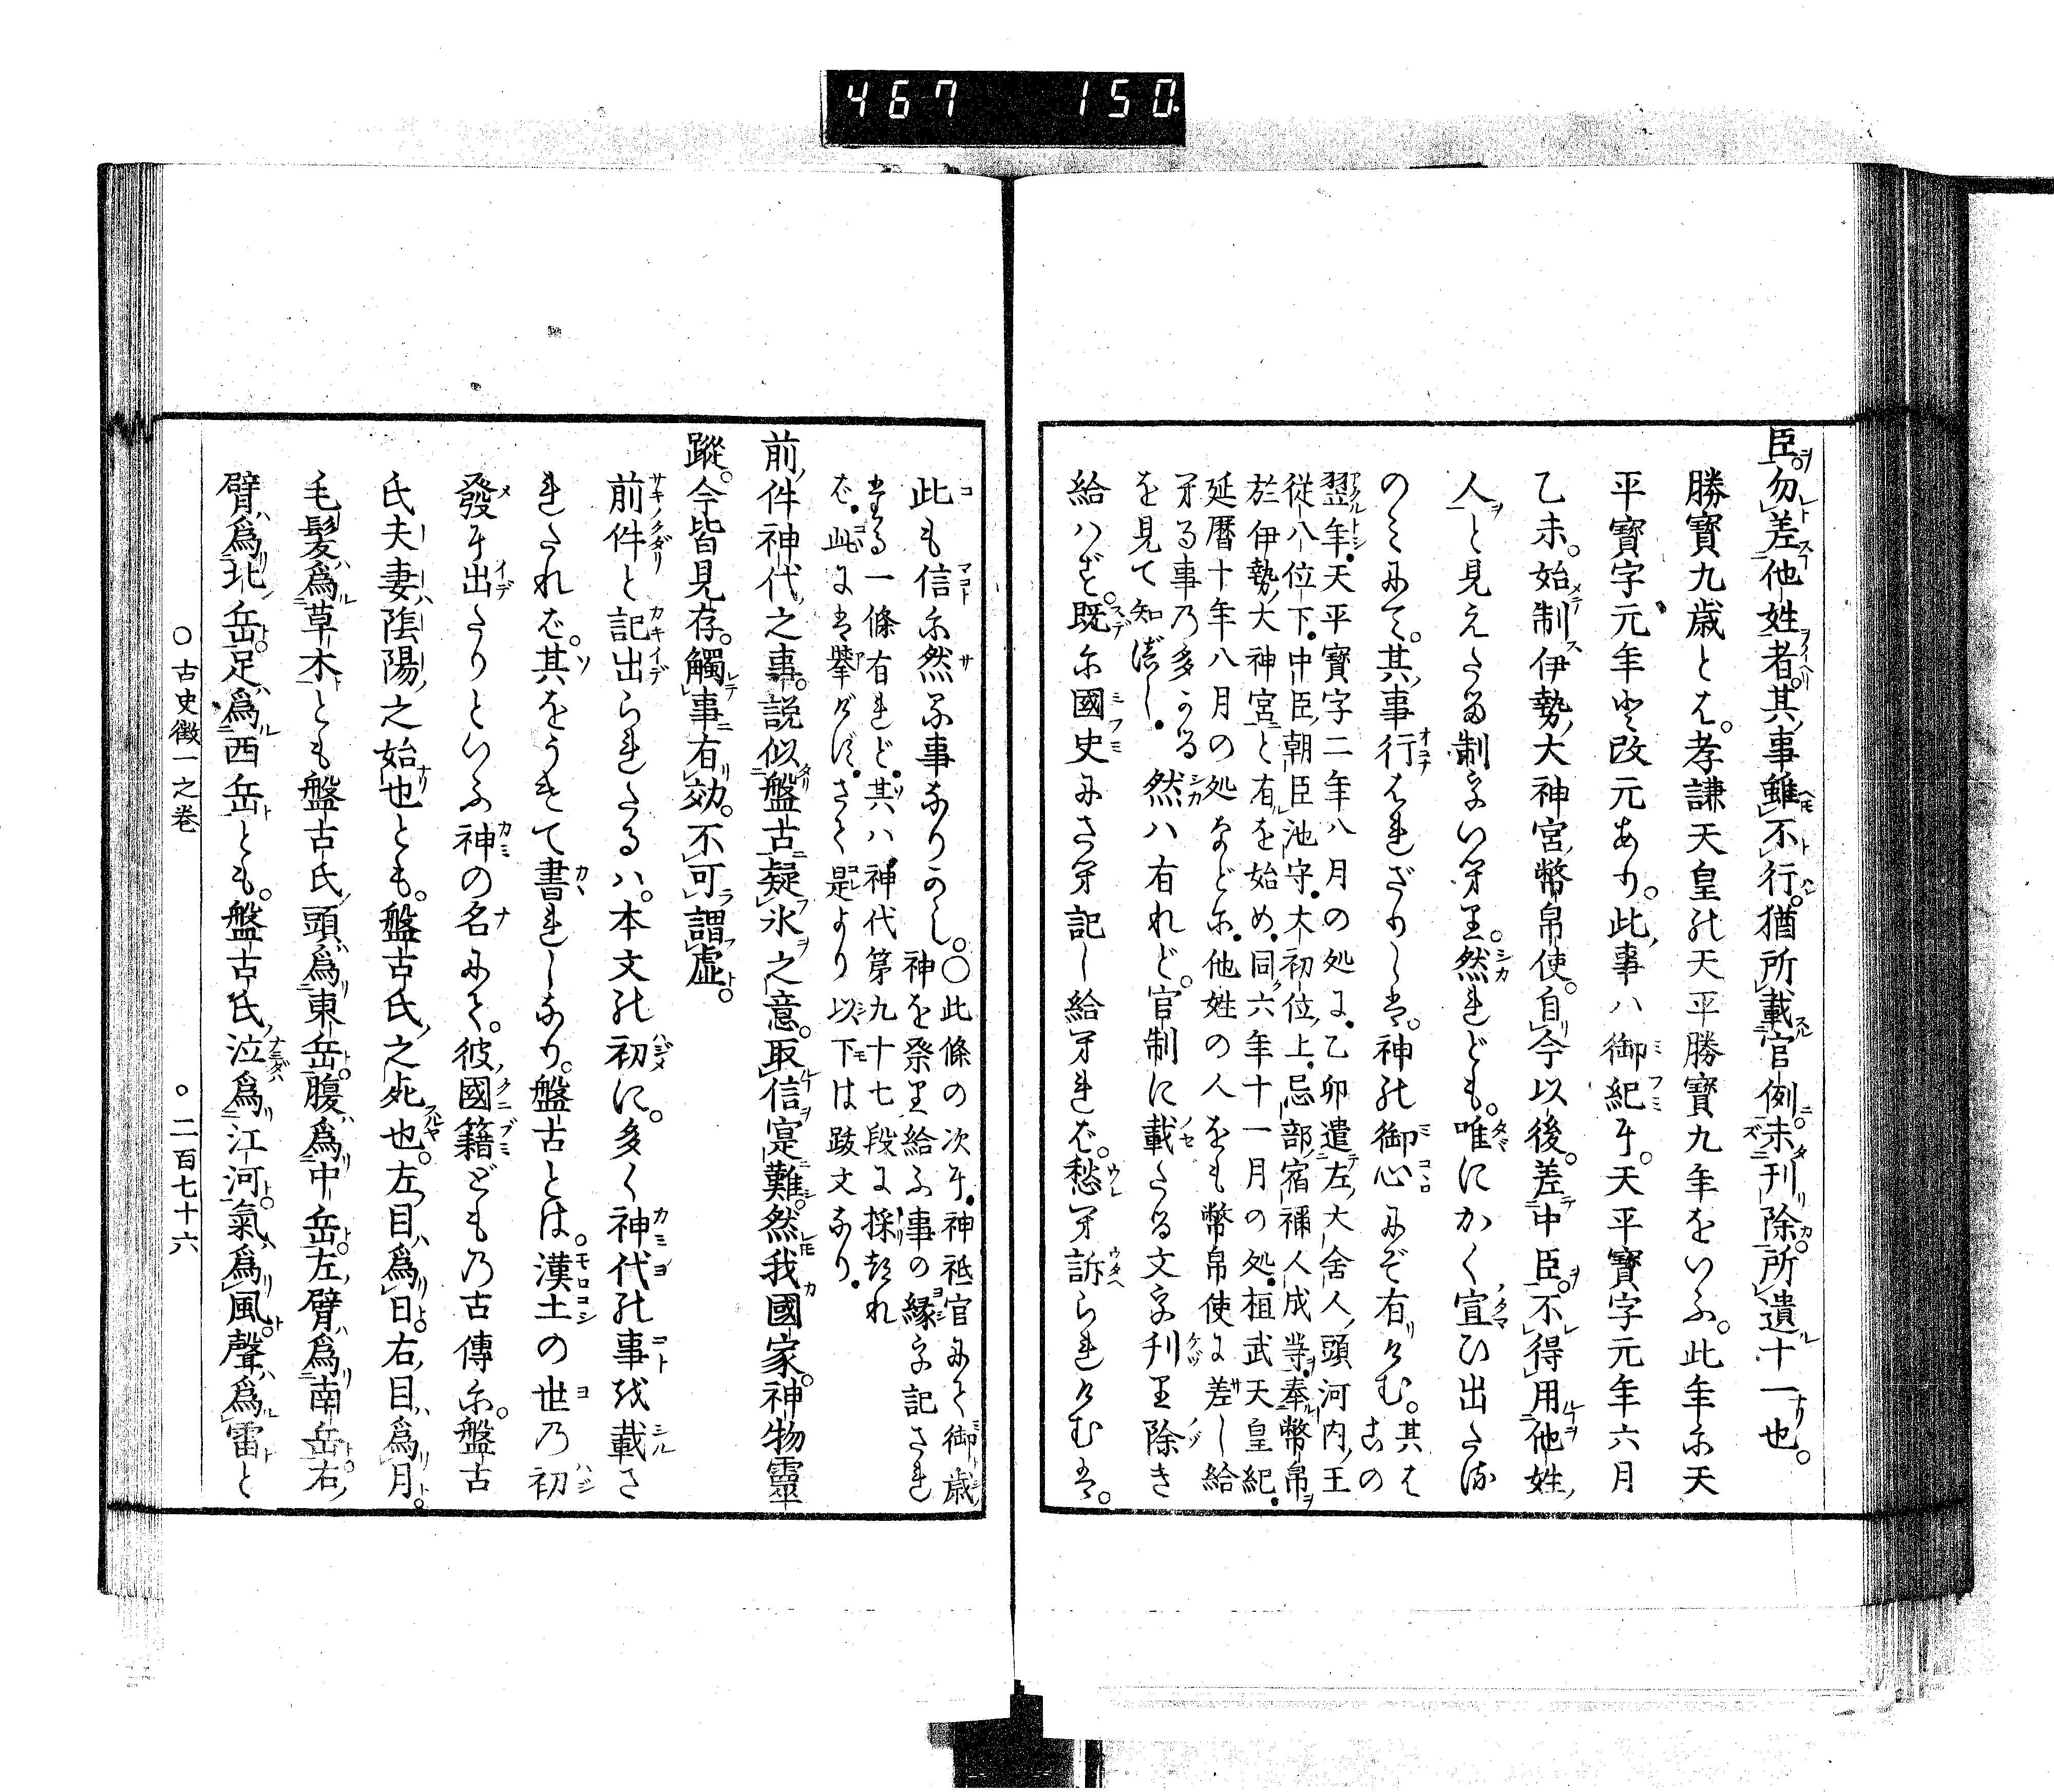 467 150
臣。勿差他姓者。其事雖不行。猶所載官例。未刊除。所遺十一也。
勝寶九歳とハ。孝謙天皇の天平勝寶九年をいふ。此年に天
平寶字元年と改元あり。此事ハ御紀に。天平寶字元年六月
乙未。始制伊勢大神宮幣帛使。自今以後。差中臣。不得用他姓
人と見えたる制をいへり。然れども。唯にかく宣ひ出たる
のミにて。其事行はれざりしは。神の御心にぞ有けむ。其は
この
翌年。天平寶字二年八月の処に。乙卯遣左大舍人頭河内王
從八位下。中臣朝臣池守。大初位上。忌部宿禰人成等。奉幣帛
於伊勢大神宮と有を始め。同六年十一月の処。桓武天皇紀。
延暦十年八月の処などに。他姓の人をも幣帛使に差し給
へる事の多かる
を見て知べし。然ハ有れど。官制に載たる文を刊り除き
給ハず。既に國史にさへ記し給へれば。愁へ訴られけむは。
此も信に然る事なりかし。○此條の次に。神祇官にて御歳
神を祭り給ふ事の縁を記され
たる一條有れど。其ハ神代第九十七段に採たれ
ば。此には擧げず。さて是より以下は跋文なり。
前件神代之事。説似盤古。疑氷之意。取信寔難。然我國家。神物靈
蹤。今皆見存。觸事有効。不可謂虚。
前件と記出られたるハ。本文の初に。多く神代の事を載さ
れたれば。其をうけて書れしなり。盤古とは。漢土の世の初
發に出たりといふ神の名にて。彼國籍どもの古傳に。盤古
氏夫妻陰陽之始也とも。盤古氏之死也。左目爲日。右目爲月。
毛髮爲草木とも盤古氏頭爲東岳。腹爲中岳。左臂爲南岳。右
臂爲北岳。足爲西岳とも。盤古氏泣爲江河。氣爲風。聲爲雷と
○古史徴一之巻
○二百七十六